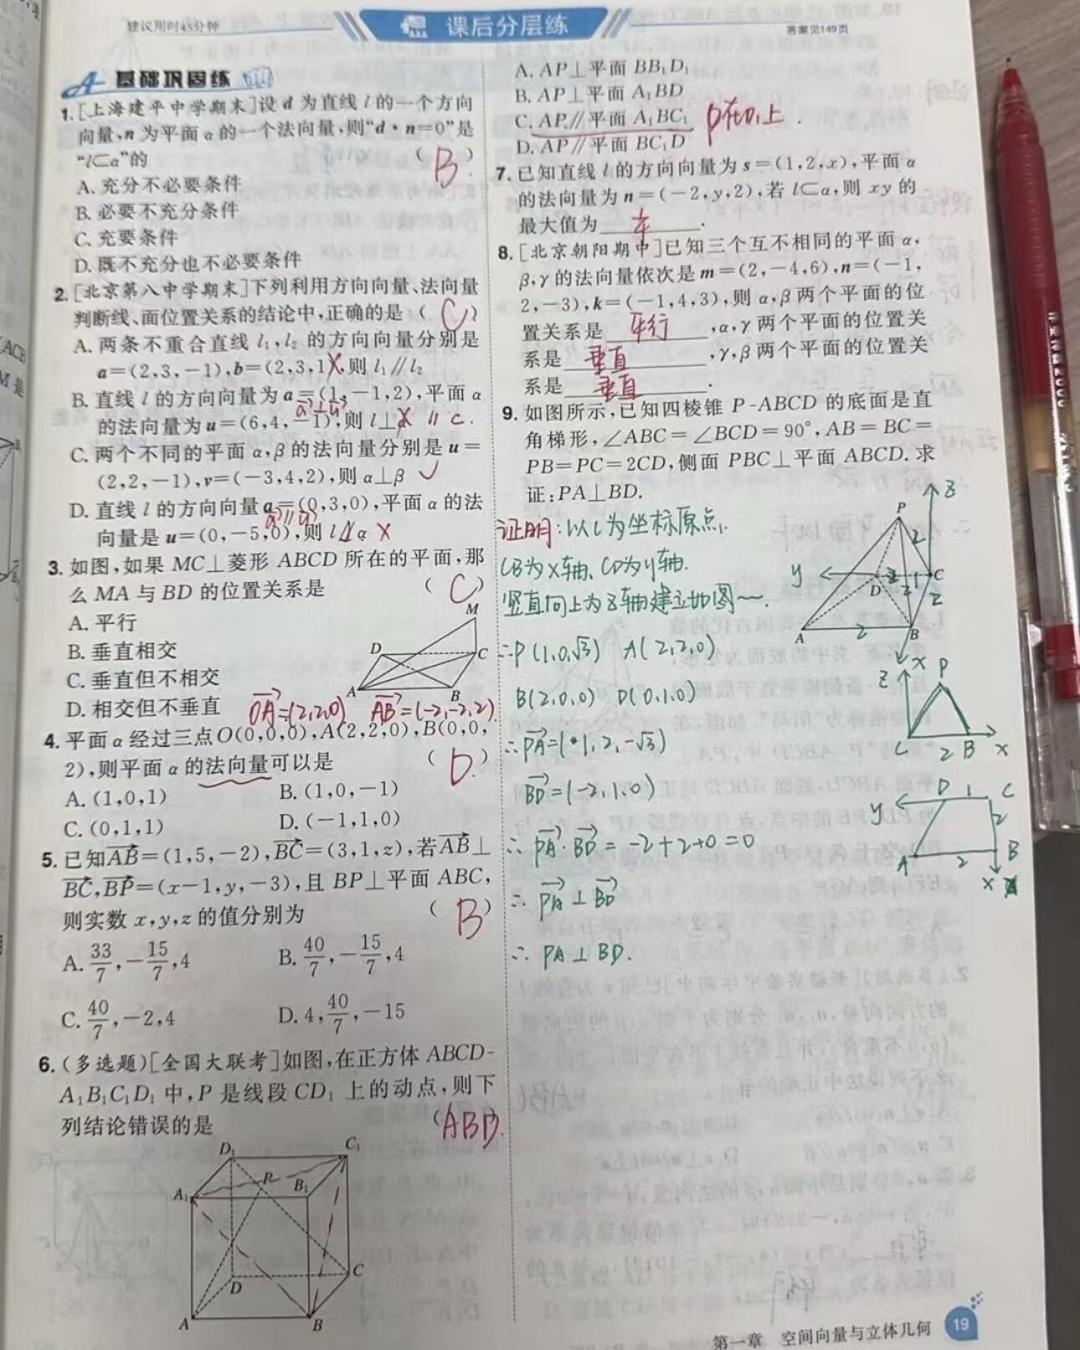 建议用时45分钟
课后分层练
答案见149页
A 基础巩固练
1.[上海建平中学期末]设d为直线l的一个方向
向量,n为平面α的一个法向量,则“d·n=0”是
“l⊂α”的 ( B )
A.充分不必要条件
B.必要不充分条件
C.充要条件
D.既不充分也不必要条件
2.[北京第八中学期末]下列利用方向向量、法向量
判断线、面位置关系的结论中,正确的是 ( C )
A.两条不重合直线l₁,l₂的方向向量分别是
a=(2,3,-1),b=(2,3,1),则l₁∥l₂
B.直线l的方向向量为a=(1,-1,2),平面α
的法向量为u=(6,4,-1),则l⊥α
C.两个不同的平面α,β的法向量分别是u=
(2,2,-1),v=(-3,4,2),则α⊥β ✓
D.直线l的方向向量a=(0,3,0),平面α的法
向量是u=(0,-5,0),则l∥α ×
3.如图,如果MC⊥菱形ABCD所在的平面,那
么MA与BD的位置关系是 ( C )
A.平行
B.垂直相交
C.垂直但不相交
D.相交但不垂直
M
D
C
A
B
OA=(2,2,0) AB=(-2,-2,2)
4.平面α经过三点O(0,0,0),A(2,2,0),B(0,0,
2),则平面α的法向量可以是 ( D )
A.(1,0,1) B.(1,0,-1)
C.(0,1,1) D.(-1,1,0)
5.已知AB=(1,5,-2),BC=(3,1,z),若AB⊥
BC,BP=(x-1,y,-3),且BP⊥平面ABC,
则实数x,y,z的值分别为 ( B )
A.33/7,-15/7,4 B.40/7,-15/7,4
C.40/7,-2,4 D.4,40/7,-15
6.(多选题)[全国大联考]如图,在正方体ABCD-
A₁B₁C₁D₁中,P是线段CD₁上的动点,则下
列结论错误的是 (ABD)
D₁
C₁
A₁
P
B₁
D
C
A
B
A.AP⊥平面BB₁D₁
B.AP⊥平面A₁BD
C.AP∥平面A₁BC₁
D.AP∥平面BC₁D
7.已知直线l的方向向量为s=(1,2,x),平面α
的法向量为n=(-2,y,2),若l⊂α,则xy的
最大值为
8.[北京朝阳期中]已知三个互不相同的平面α,
β,γ的法向量依次是m=(2,-4,6),n=(-1,
2,-3),k=(-1,4,3),则α,β两个平面的位
置关系是 平行 ,α,γ两个平面的位置关
系是 垂直 ,γ,β两个平面的位置关
系是 垂直 .
9.如图所示,已知四棱锥P-ABCD的底面是直
角梯形,∠ABC=∠BCD=90°,AB=BC=
PB=PC=2CD,侧面PBC⊥平面ABCD.求
证:PA⊥BD.
证明:以C为坐标原点,
CB为x轴、CD为y轴.
竖直向上为z轴建立如图~.
∴P(1,0,√3) A(2,2,0)
B(2,0,0) D(0,1,0)
∴PA=(1,2,-√3)
BD=(-2,1,0)
∴PA·BD=-2+2+0=0
∴PA⊥BD
∴PA⊥BD.
z
P
2
y
D
C
2
A
2
B
x
z
P
C
2
B
x
D
1
C
y
2
A
2
B
x
第一章 空间向量与立体几何
19